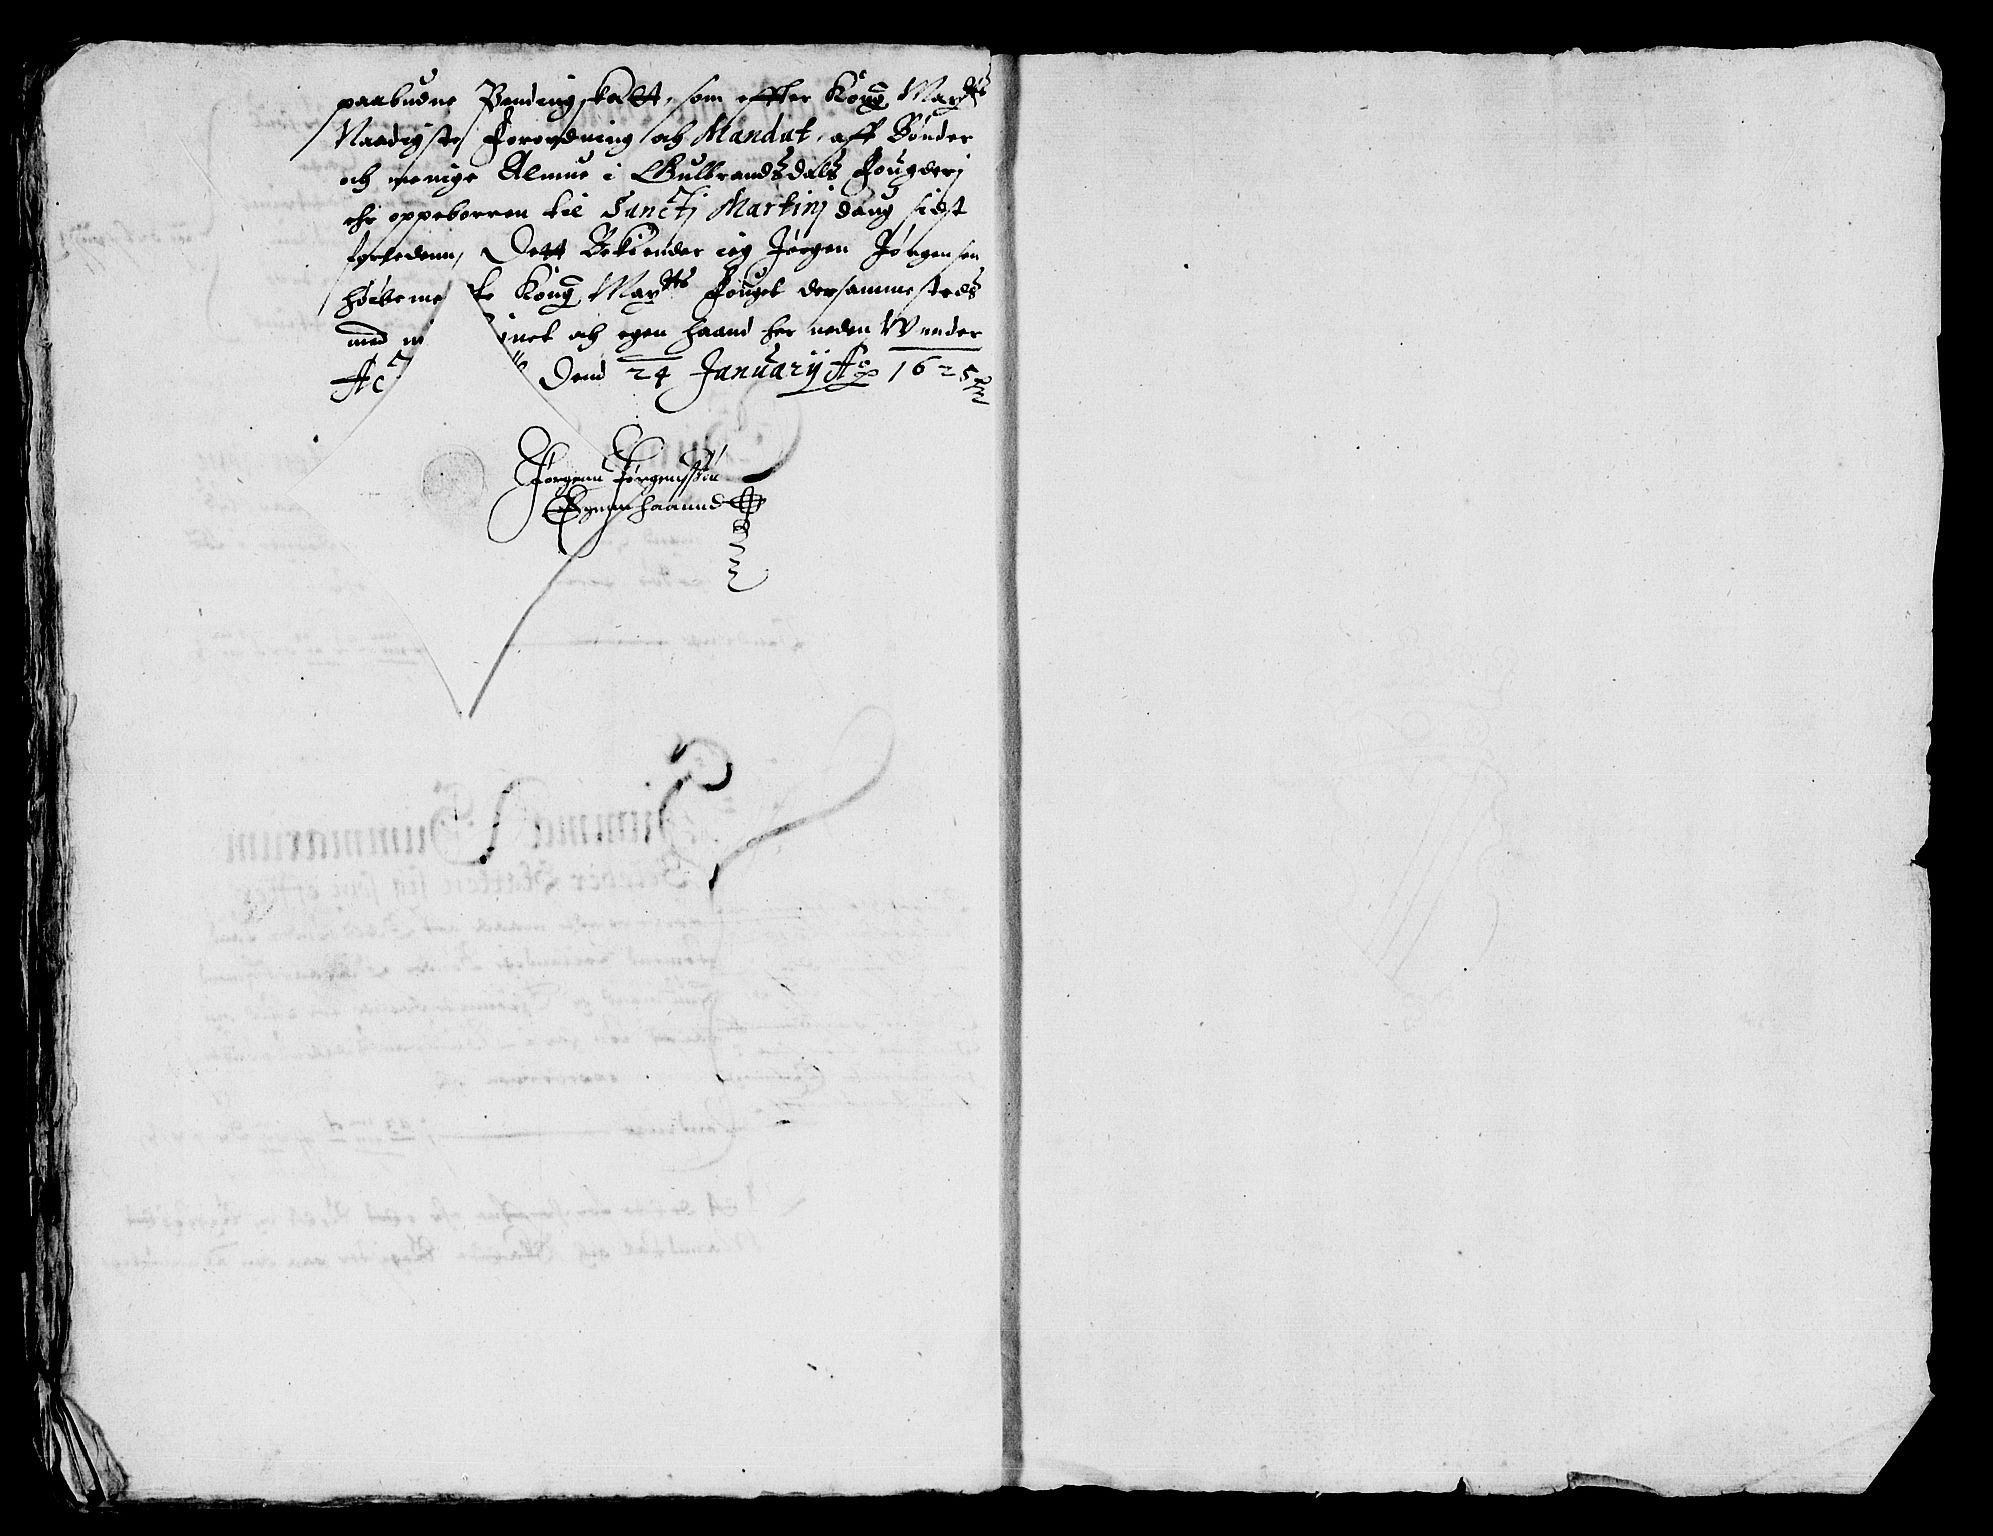 paabudne Pendingskatt, som effter Kong May^tts
Naadigste Forordning och Mandat, aff Bønder
och menige Almue i Gulbrandsdals Fougderj
ehr oppeborren til Sanctj Martinj daug sidst
forledenn, Dett Bekiender ieg Jørgen Jørgensen
Kong May^tts Fouget dersammesteds
med och egen haand her neden Wnder
Dend 24 January A^o 1625
Jørgenn Jørgenssøn
Egenn haannd